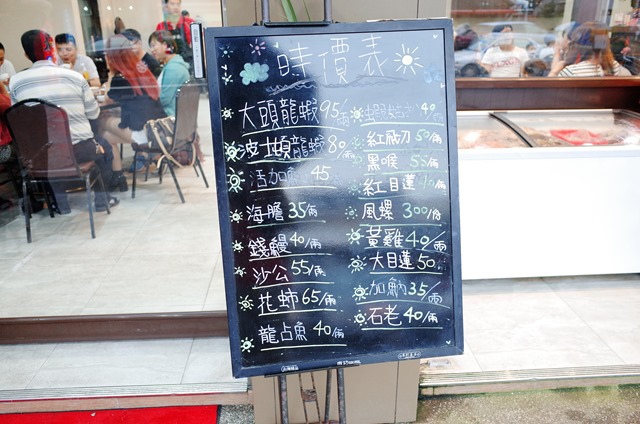 時價表
大頭龍蝦95/兩
波士頓龍蝦80/兩
活加魶45/兩
海膽35/兩
錢鰻40/兩
沙公55/兩
花蚵65/兩
龍占魚40/兩
40/兩
紅飛刀50/兩
黑喉55/兩
紅目蓮40/兩
風螺300/份
黃雞40/兩
大目蓮50/兩
加魶35/兩
石老40/兩